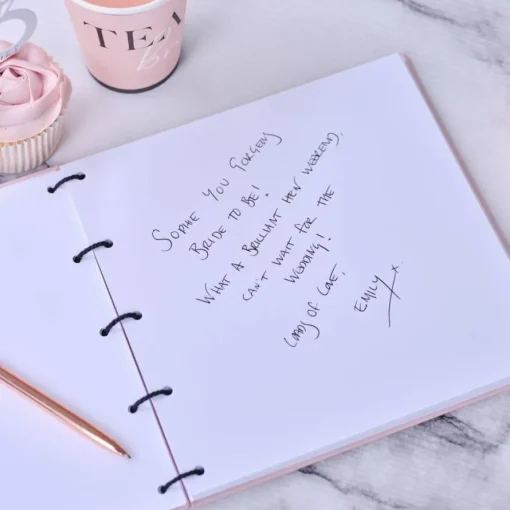 TEA
B
SOPHIE YOU GORGEOUS
BRIDE TO BE!
WHAT A BRILLIANT HEN WEEKEND.
CAN'T WAIT FOR THE
WEDDING!
LOADS OF LOVE.
EMILY x.